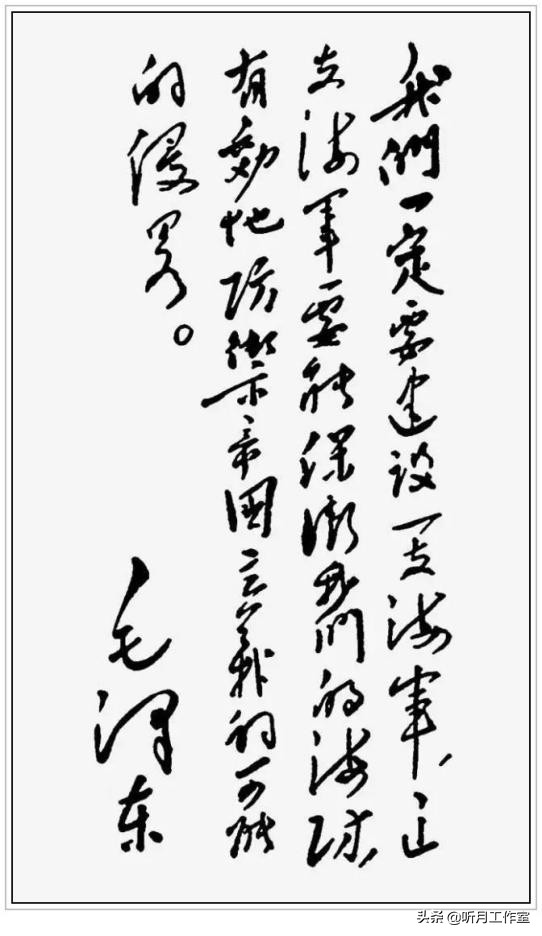 我們一定要建設一支海軍，這
支海軍要能保衛我們的海防，
有効地防禦帝國主義的可能
的侵畧。
毛澤東
头条 @听月工作室